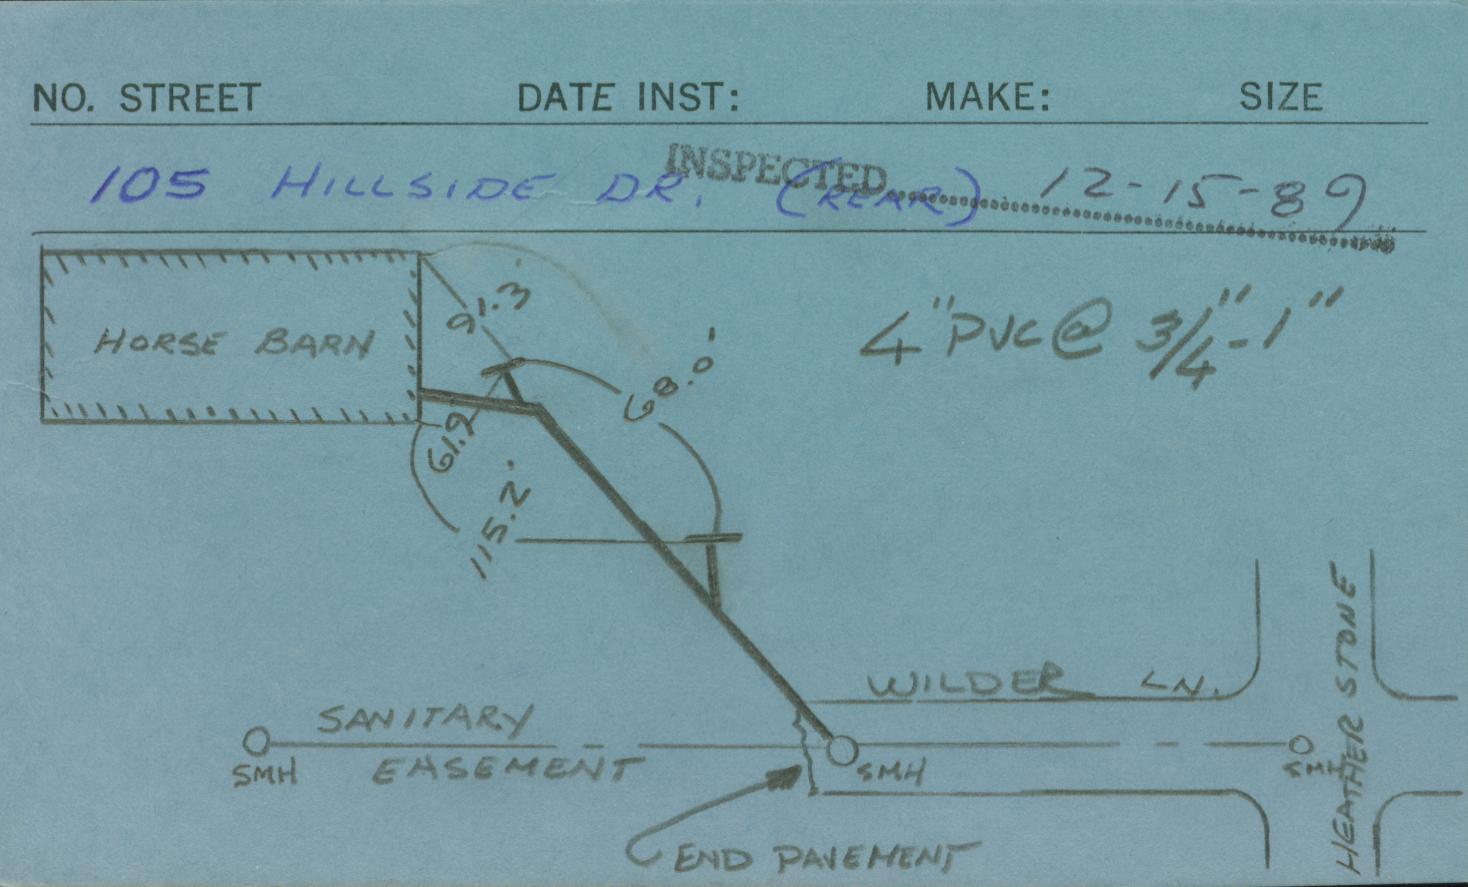 NO. STREET DATE INST: MAKE: SIZE
INSPECTED
105 HILLSIDE DR. (REAR) 12-15-89
91.3'
HORSE BARN
4" PVC @ 3/4"-1"
68.0'
61.9
115.2'
WILDER LN.
HEATHER STONE
SANITARY
EASEMENT
SMH
SMH
SMH
END PAVEMENT